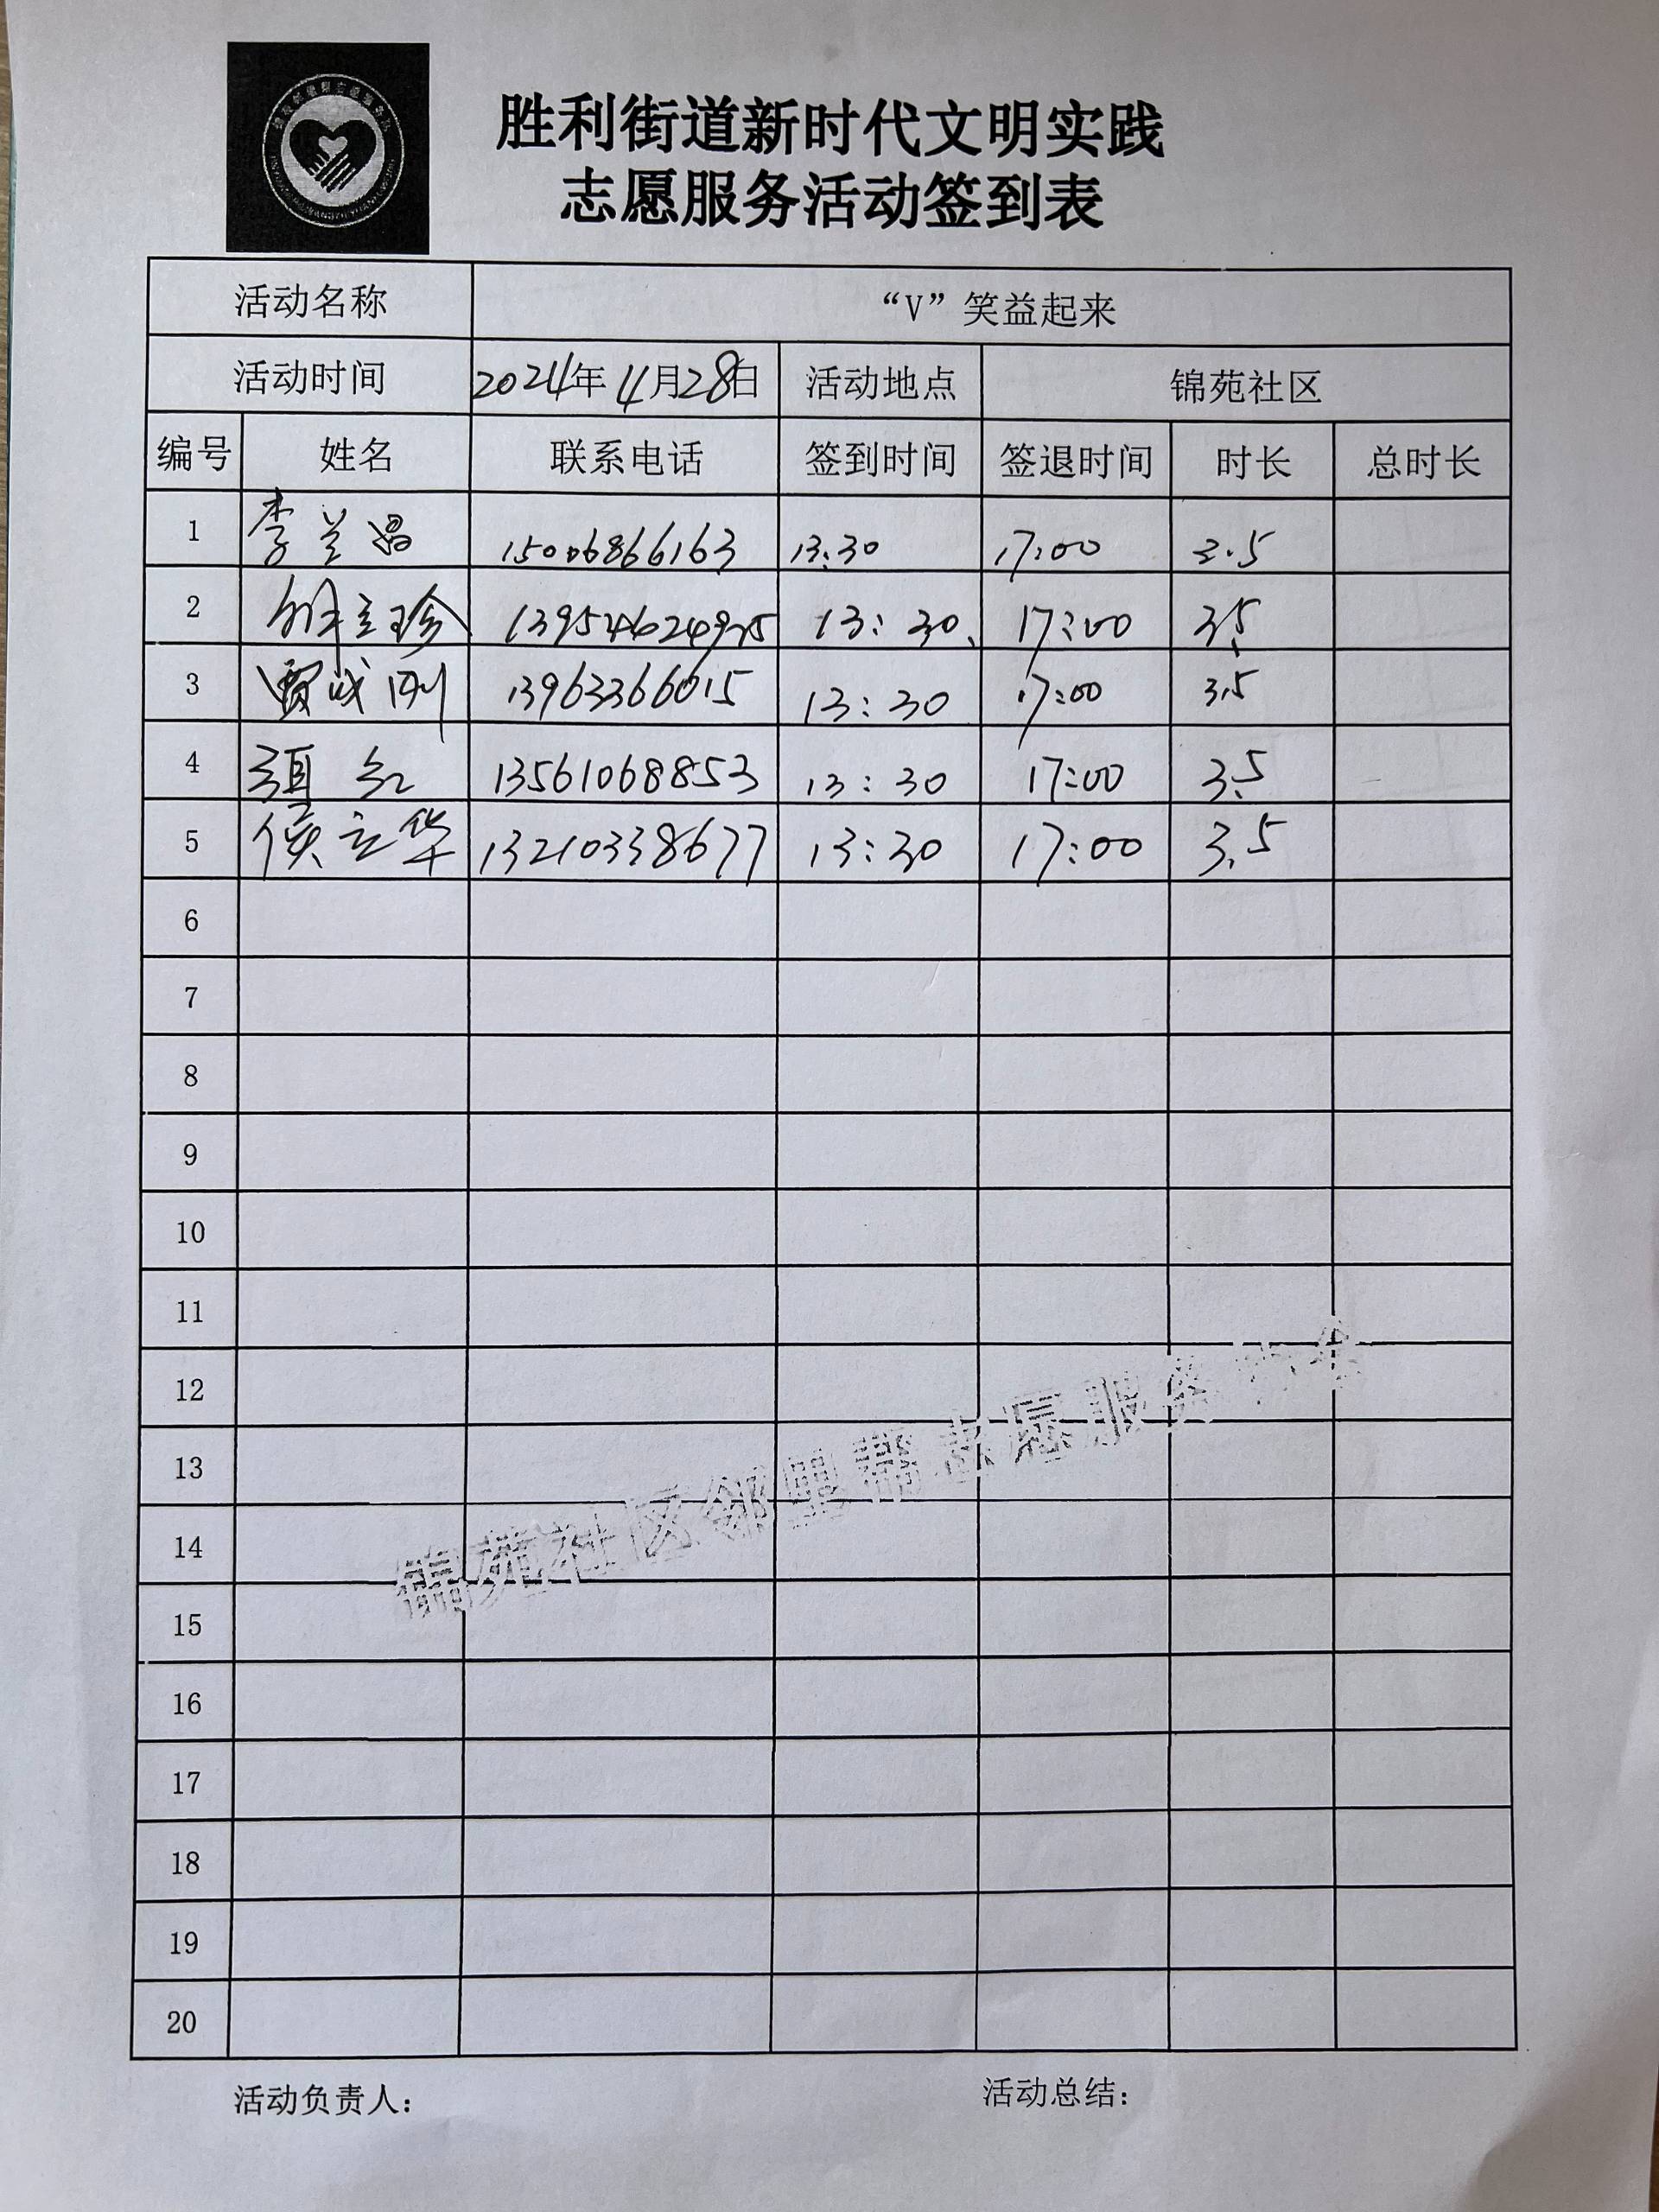 胜利街道新时代文明实践
志愿服务活动签到表
活动名称 “V”笑益起来
活动时间 2024年4月28日 活动地点 锦苑社区
编号 姓名 联系电话 签到时间 签退时间 时长 总时长
1 李兰昌 15006866163 13:30 17:00 3.5
2 立珍 13:30 17:00 3.5
3 贾成刚 13963366015 13:30 17:00 3.5
4 红 13561068853 13:30 17:00 3.5
5 侯立华 13210338677 13:30 17:00 3.5
6
7
8
9
10
11
12
13
14
15
16
17
18
19
20
锦苑社区邻里帮志愿服务协会
活动负责人： 活动总结：